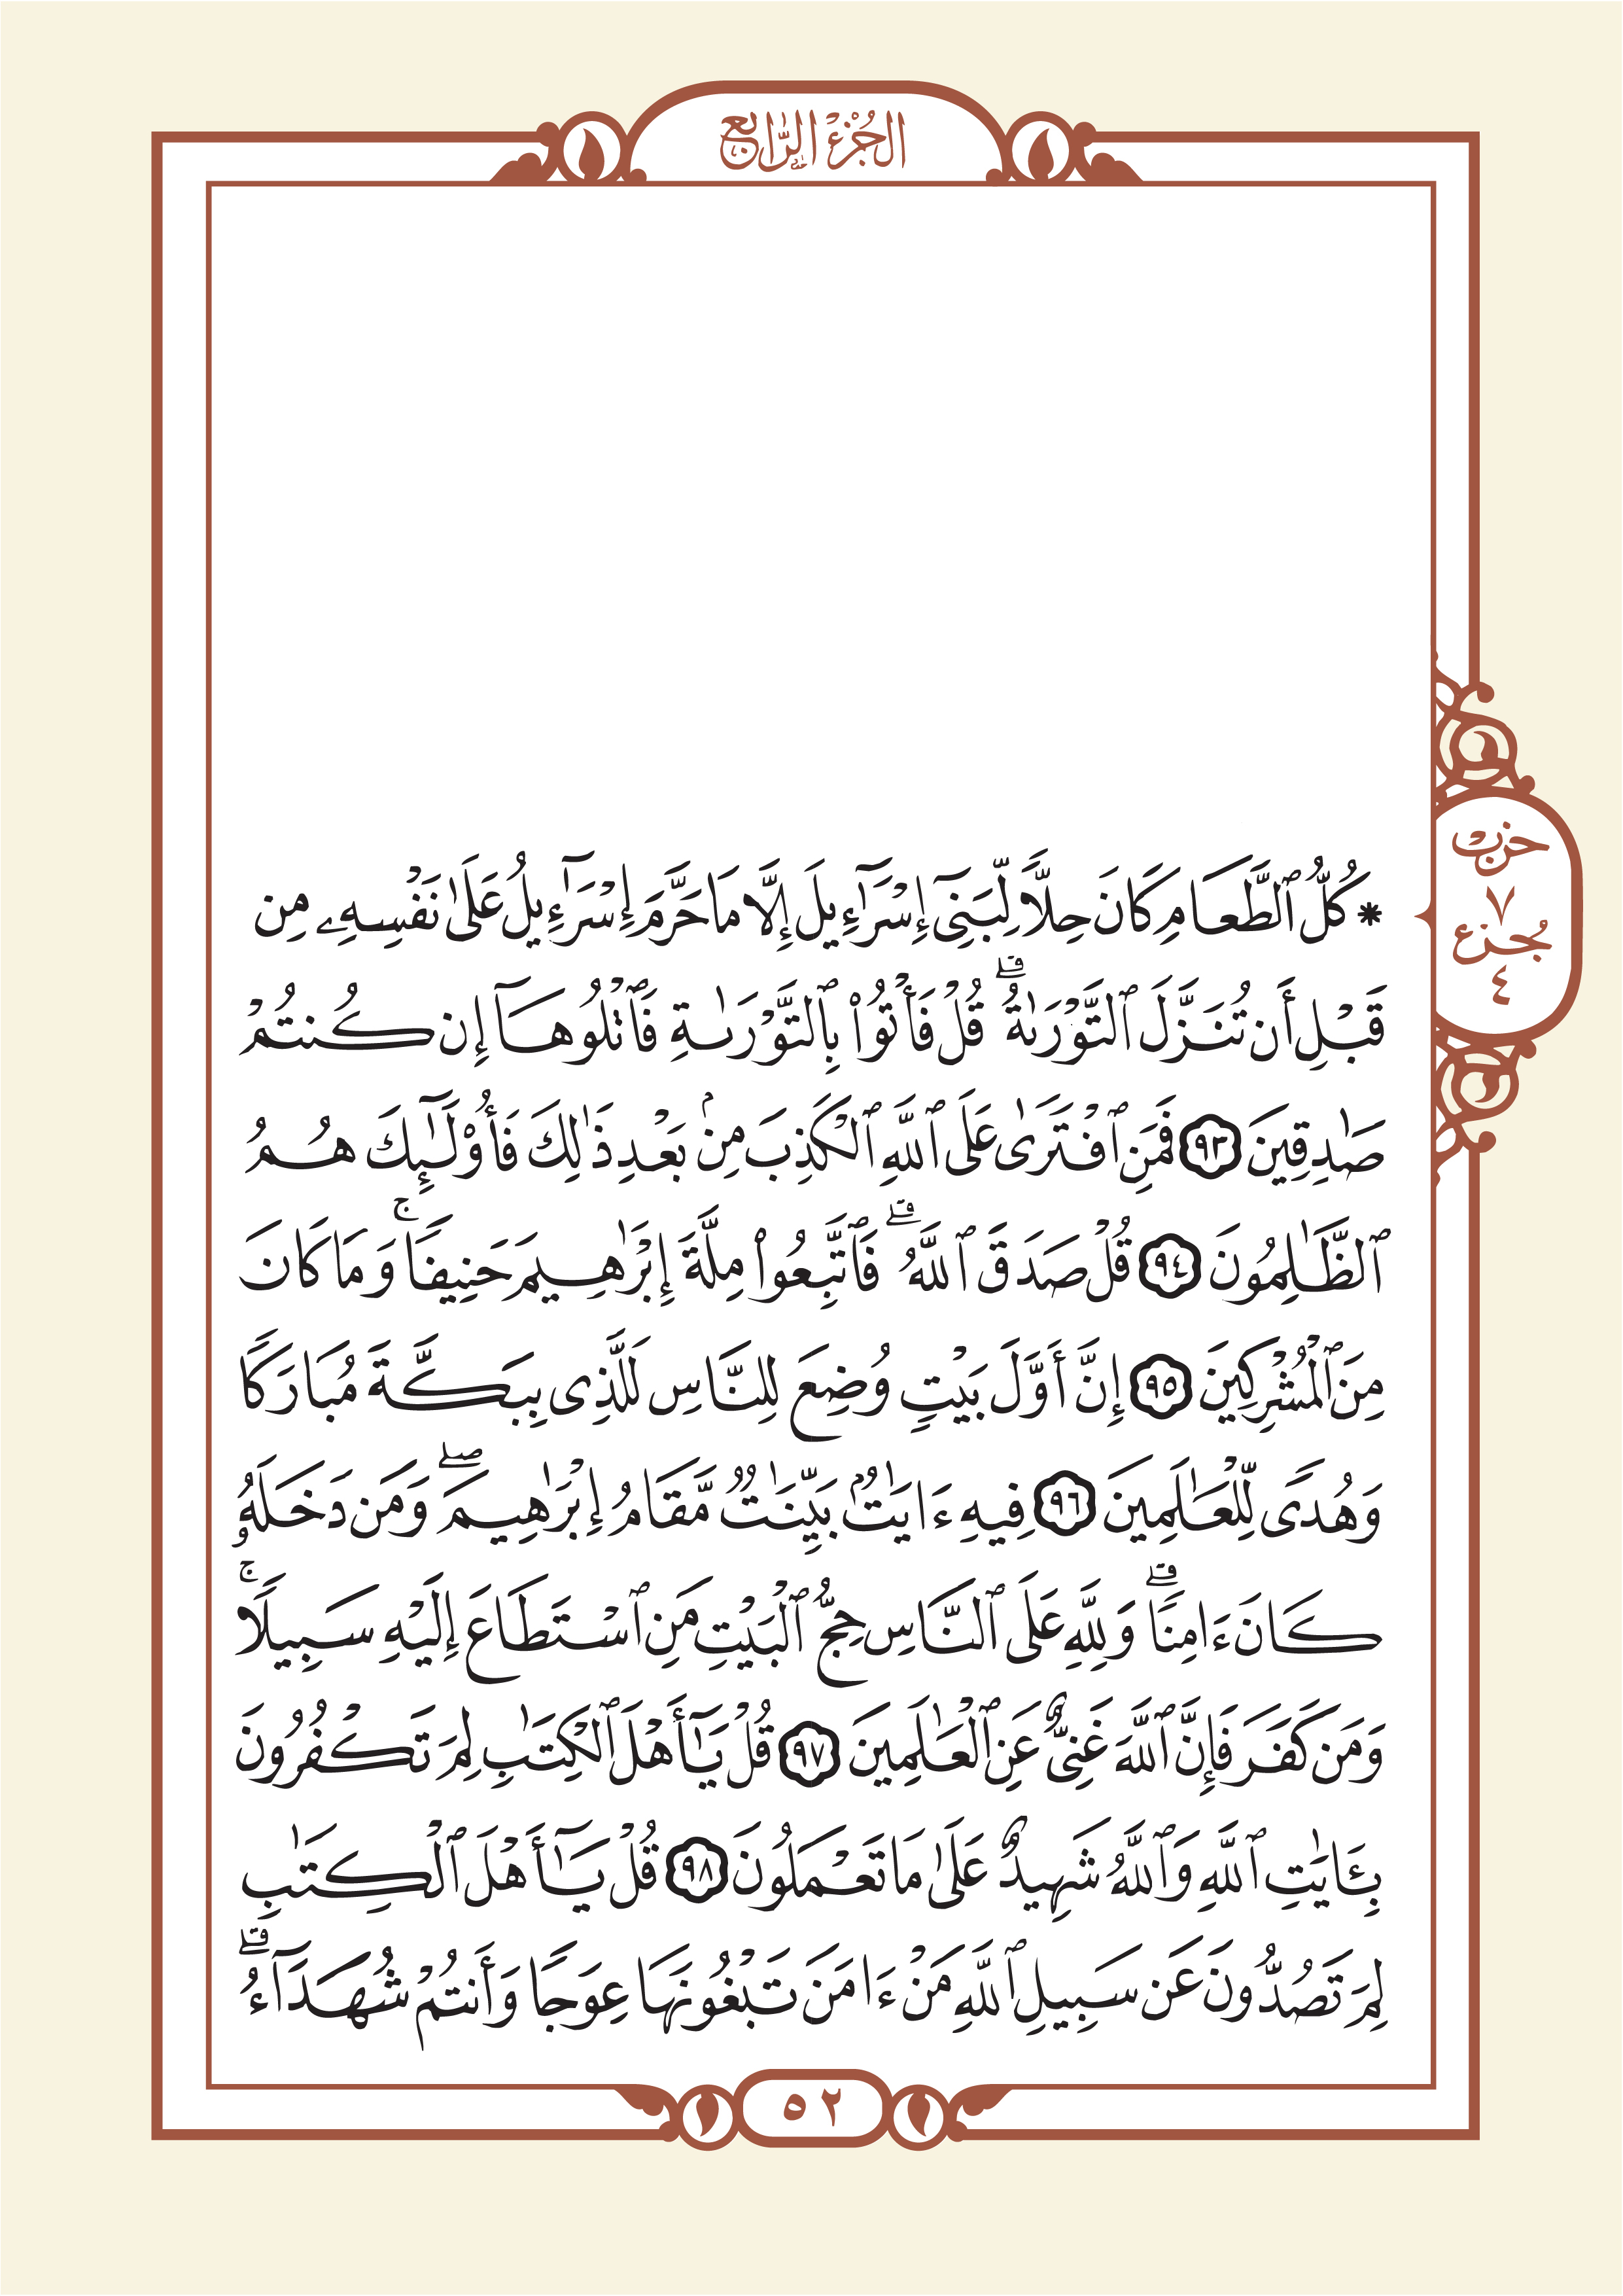 الجُزْءُ الرَّابِعُ
* كُلُّ ٱلطَّعَامِ كَانَ حِلًّا لِّبَنِىٓ إِسْرَـٰٓءِيلَ إِلَّا مَا حَرَّمَ إِسْرَـٰٓءِيلُ عَلَىٰ نَفْسِهِۦ مِن
قَبْلِ أَن تُنَزَّلَ ٱلتَّوْرَىٰةُ ۗ قُلْ فَأْتُوا۟ بِٱلتَّوْرَىٰةِ فَٱتْلُوهَآ إِن كُنتُمْ
صَـٰدِقِينَ ٩٣ فَمَنِ ٱفْتَرَىٰ عَلَى ٱللَّهِ ٱلْكَذِبَ مِنۢ بَعْدِ ذَٰلِكَ فَأُو۟لَـٰٓئِكَ هُمُ
ٱلظَّـٰلِمُونَ ٩٤ قُلْ صَدَقَ ٱللَّهُ ۗ فَٱتَّبِعُوا۟ مِلَّةَ إِبْرَٰهِيمَ حَنِيفًا ۚ وَمَا كَانَ
مِنَ ٱلْمُشْرِكِينَ ٩٥ إِنَّ أَوَّلَ بَيْتٍ وُضِعَ لِلنَّاسِ لَلَّذِى بِبَكَّةَ مُبَارَكًا
وَهُدًى لِّلْعَـٰلَمِينَ ٩٦ فِيهِ ءَايَـٰتٌۢ بَيِّنَـٰتٌ مَّقَامُ إِبْرَٰهِيمَ ۖ وَمَن دَخَلَهُۥ
كَانَ ءَامِنًا ۗ وَلِلَّهِ عَلَى ٱلنَّاسِ حِجُّ ٱلْبَيْتِ مَنِ ٱسْتَطَاعَ إِلَيْهِ سَبِيلًا ۚ
وَمَن كَفَرَ فَإِنَّ ٱللَّهَ غَنِىٌّ عَنِ ٱلْعَـٰلَمِينَ ٩٧ قُلْ يَـٰٓأَهْلَ ٱلْكِتَـٰبِ لِمَ تَكْفُرُونَ
بِـَٔايَـٰتِ ٱللَّهِ وَٱللَّهُ شَهِيدٌ عَلَىٰ مَا تَعْمَلُونَ ٩٨ قُلْ يَـٰٓأَهْلَ ٱلْكِتَـٰبِ
لِمَ تَصُدُّونَ عَن سَبِيلِ ٱللَّهِ مَنْ ءَامَنَ تَبْغُونَهَا عِوَجًا وَأَنتُمْ شُهَدَآءُ ۗ
حزب
٧
جزء
٤
٥٢